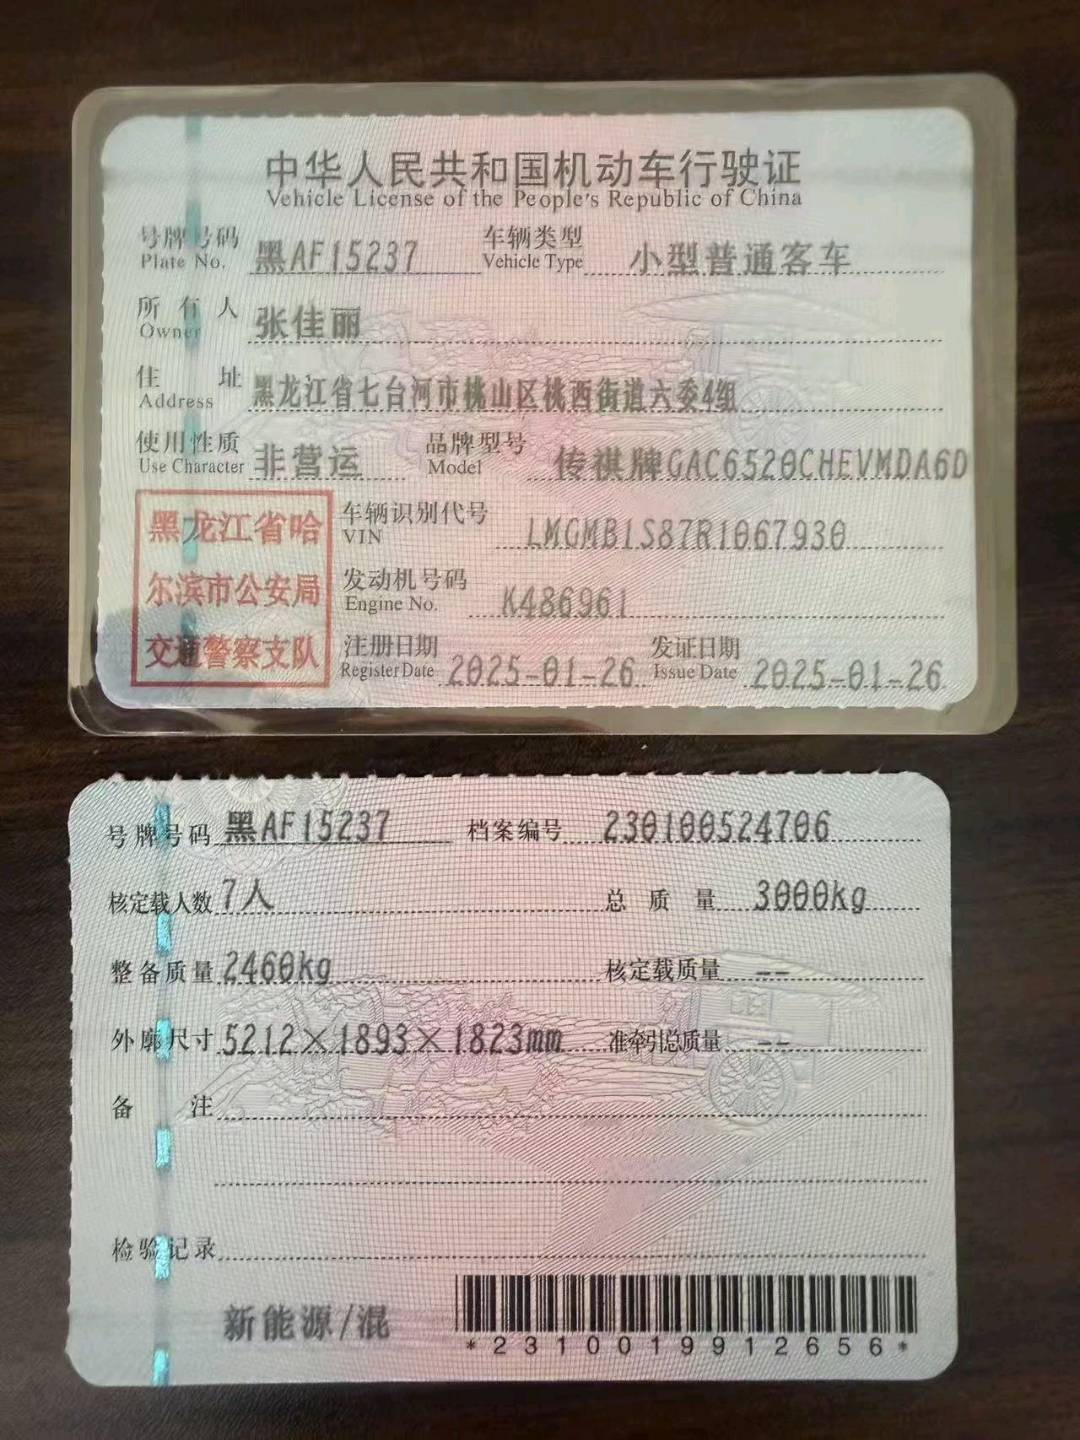 中华人民共和国机动车行驶证
Vehicle License of the People's Republic of China
号牌号码 Plate No. 黑AF15237 车辆类型 Vehicle Type 小型普通客车
所有人 Owner 张佳丽
住址 Address 黑龙江省七台河市桃山区桃西街道六委4组
使用性质 Use Character 非营运 品牌型号 Model 传祺牌GAC6520CHEVMDA6D
黑龙江省哈
尔滨市公安局
交通警察支队
车辆识别代号 VIN LMGMB1S87R1067930
发动机号码 Engine No. K486961
注册日期 Register Date 2025-01-26 发证日期 Issue Date 2025-01-26
号牌号码 黑AF15237 档案编号 230100524706
核定载人数 7人 总质量 3000kg
整备质量 2460kg 核定载质量 --
外廓尺寸 5212×1893×1823mm 准牵引总质量 --
备注
检验记录
新能源/混
*2310019912656*